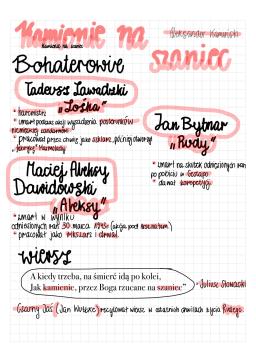 Kamienie na szaniec
Kamienie na szaniec
Aleksander Kamiński
Bohaterowie
Tadeusz Zawadzki
„Zośka"
* harcmistrz
* umarł podczas akcji wysadzenia posterunków
niemieckiej żandarmerii
* pracował przez chwilę jako szklarz, później otworzył
„fabrykę" marmolady
Jan Bytnar
„Rudy"
* umarł na skutek odniesionych ran
po pobiciu w Gestapo
* dawał korepetycje
Maciej Aleksy
Dawidowski
„Aleksy"
* zmarł w wyniku
odniesionych ran 30 marca 1943r (akcja pod Arsenałem)
* pracował jako szklarz i drwal
wiersz
A kiedy trzeba, na śmierć idą po kolei,
Jak kamienie, przez Boga rzucane na szaniec"
Juliusz Słowacki
* Czarny Jaś (Jan Wuttke) recytował wiersz w ostatnich chwilach życia Rudego.